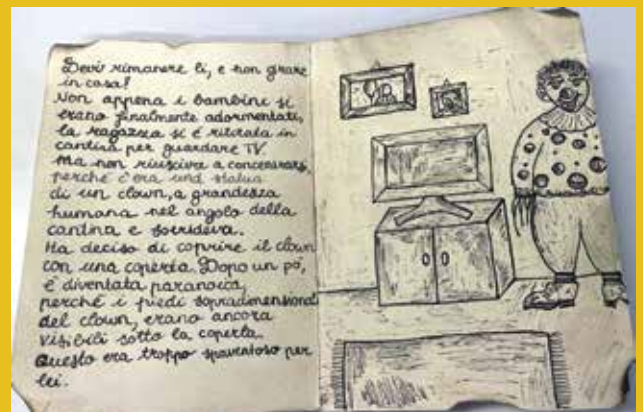 Devi rimanere lì, e non girare
in casa!
Non appena i bambini si
erano finalmente adormentati,
la ragazza si é ritirata in
cantina per guardare TV.
Ma non riusciva a concentrarsi,
perché c'era una statua
di un clown, a grandezza
humana nel angolo della
cantina e sorrideva.
Ha deciso di coprire il clown
con una coperta. Dopo un pó,
é diventata paranoica,
perché i piedi sopradimensional
del clown, erano ancora
visibili sotto la coperta.
Questo era troppo spaventoso per
lei.